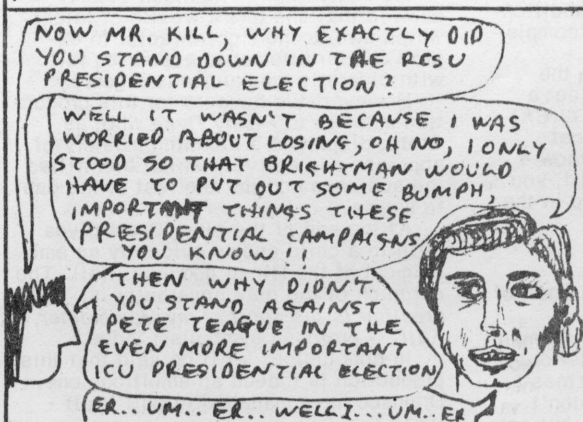 NOW MR. KILL, WHY EXACTLY DID
YOU STAND DOWN IN THE RCSU
PRESIDENTIAL ELECTION?
WELL IT WASN'T BECAUSE I WAS
WORRIED ABOUT LOSING, OH NO, I ONLY
STOOD SO THAT BRIGHTMAN WOULD
HAVE TO PUT OUT SOME BUMPH,
IMPORTANT THINGS THESE
PRESIDENTIAL CAMPAIGNS
YOU KNOW!!
THEN WHY DIDN'T
YOU STAND AGAINST
PETE TEAGUE IN THE
EVEN MORE IMPORTANT
ICU PRESIDENTIAL ELECTION
ER..UM..ER..WELL I...UM..ER